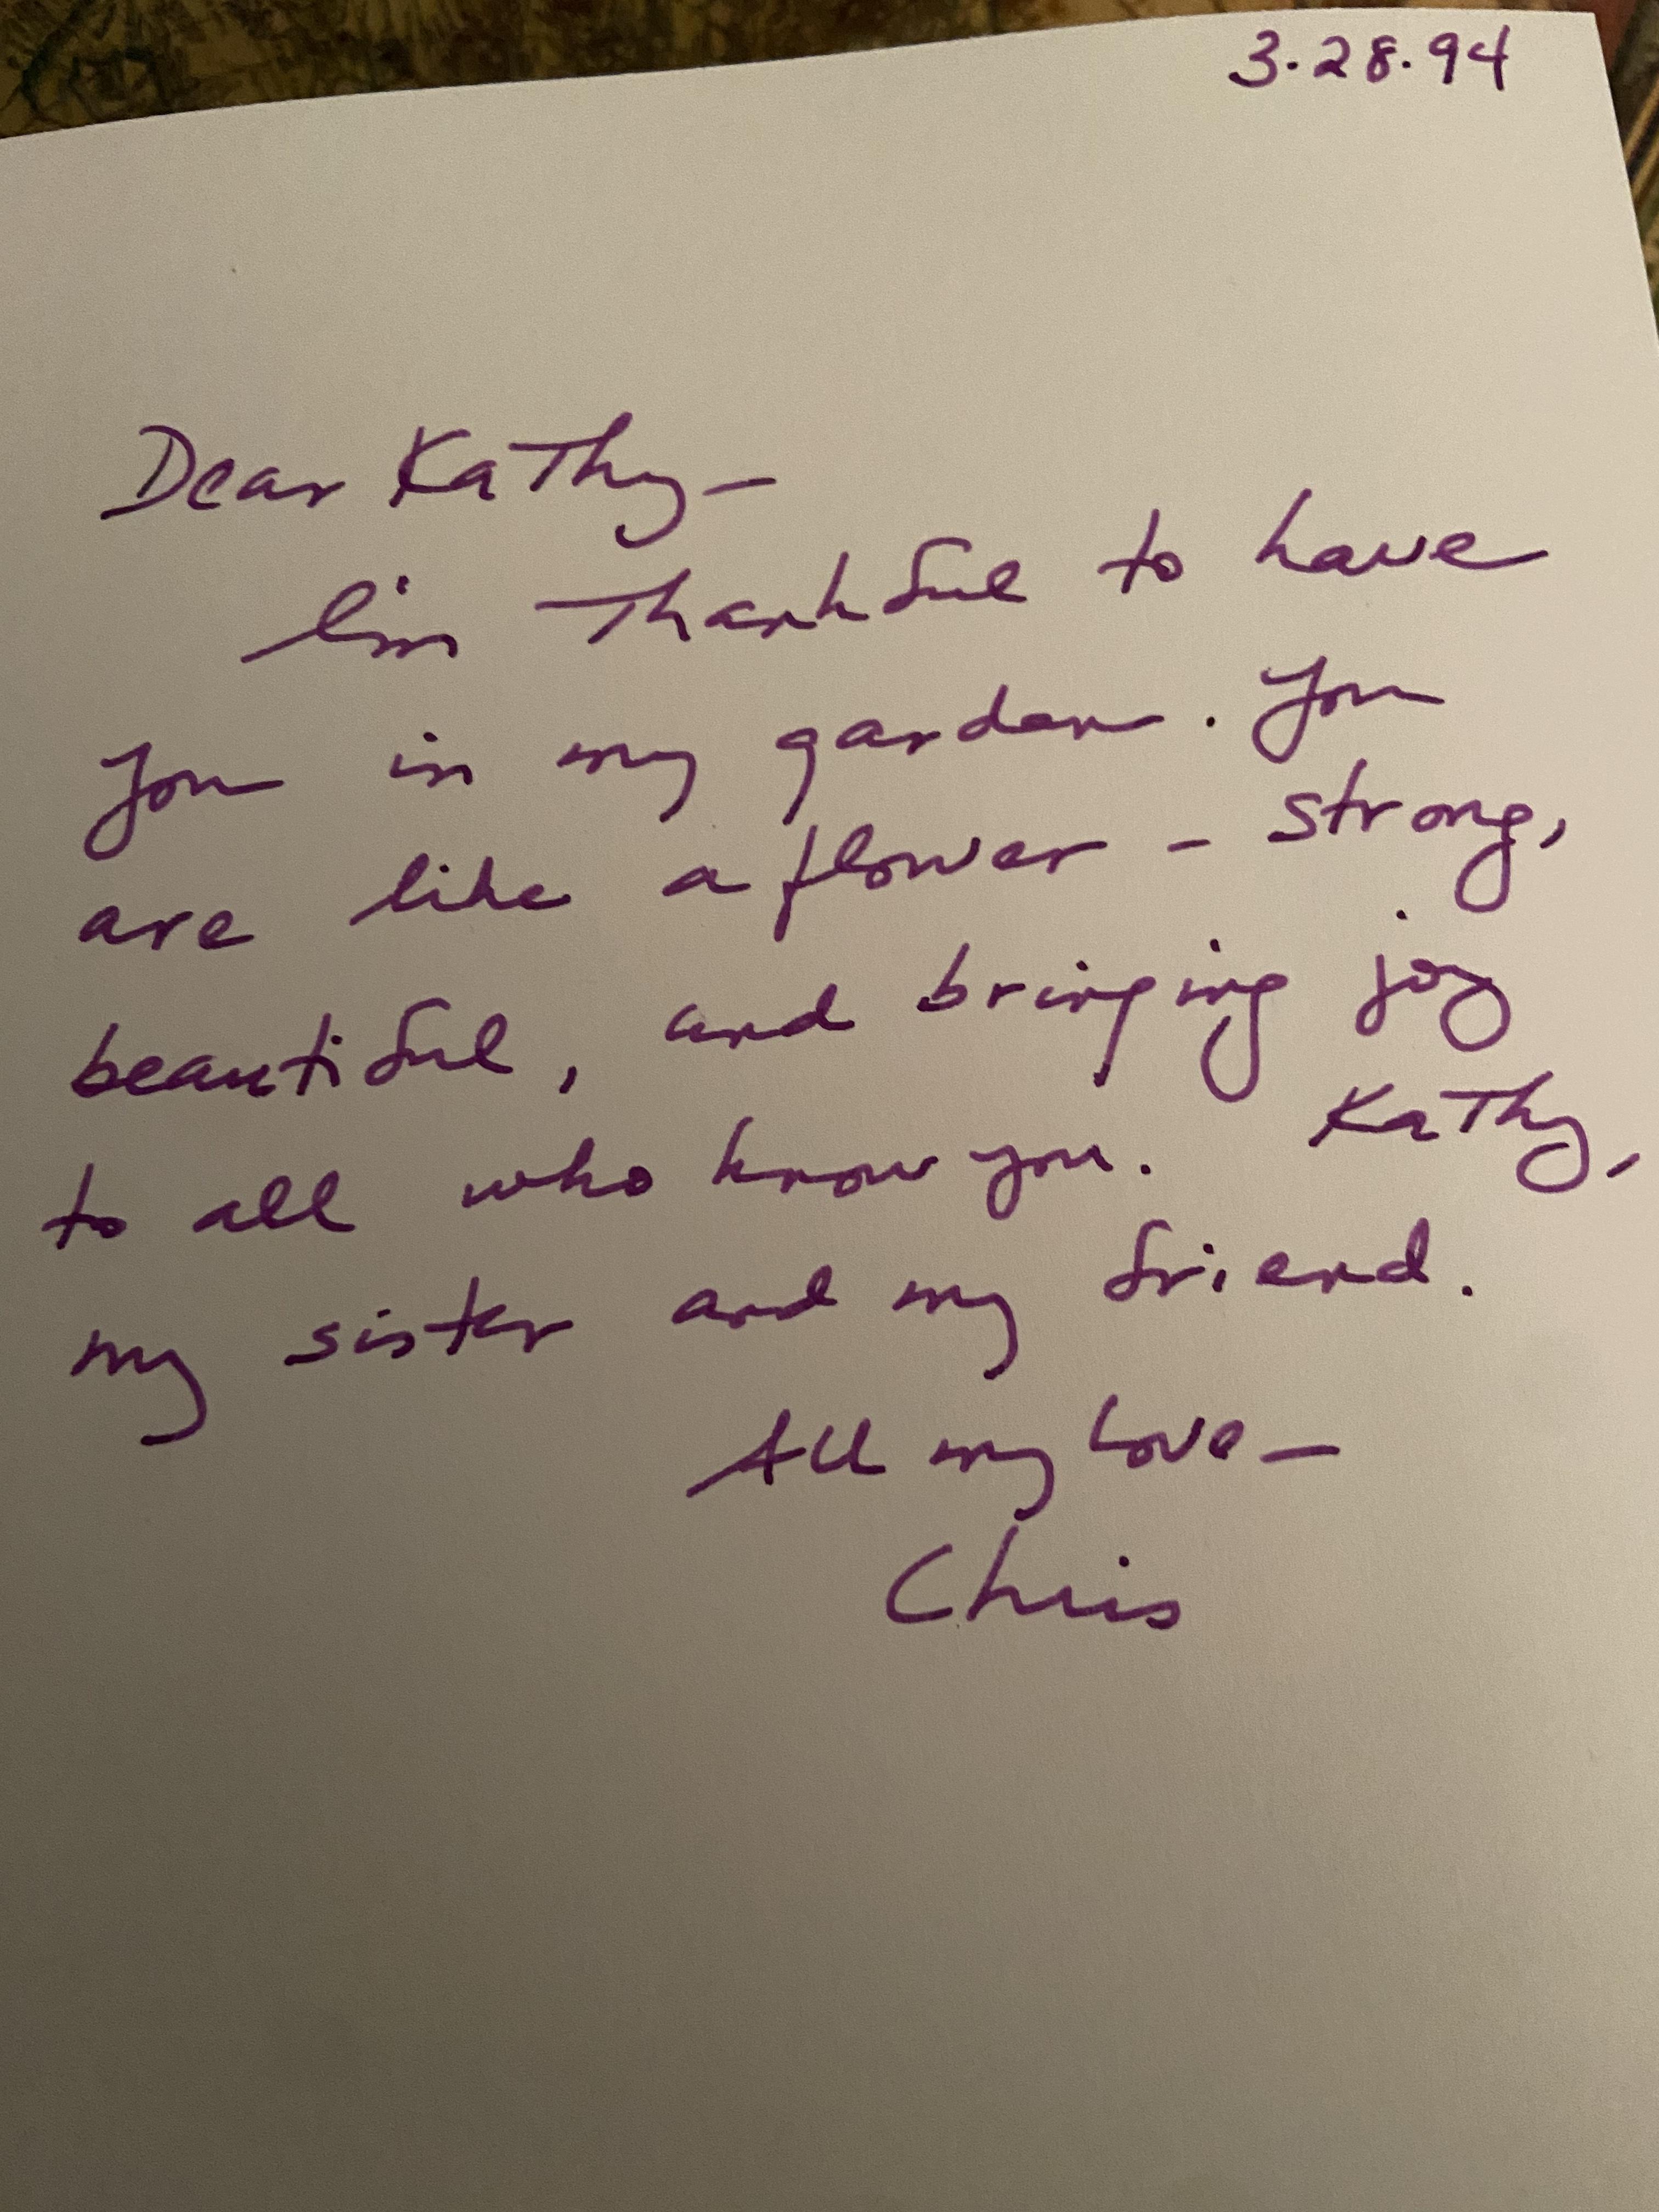 3.28.94
Dear Kathy—
I'm thankful to have
you in my garden. You
are like a flower - strong,
beautiful, and bringing joy
to all who know you. Kathy,
my sister and my friend.
All my love—
Chris